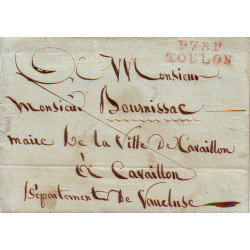 P78P
TOULON
A Monsieur
Monsieur Bournissac
maire De la Ville De Cavaillon
à Cavaillon
Département De Vaucluse